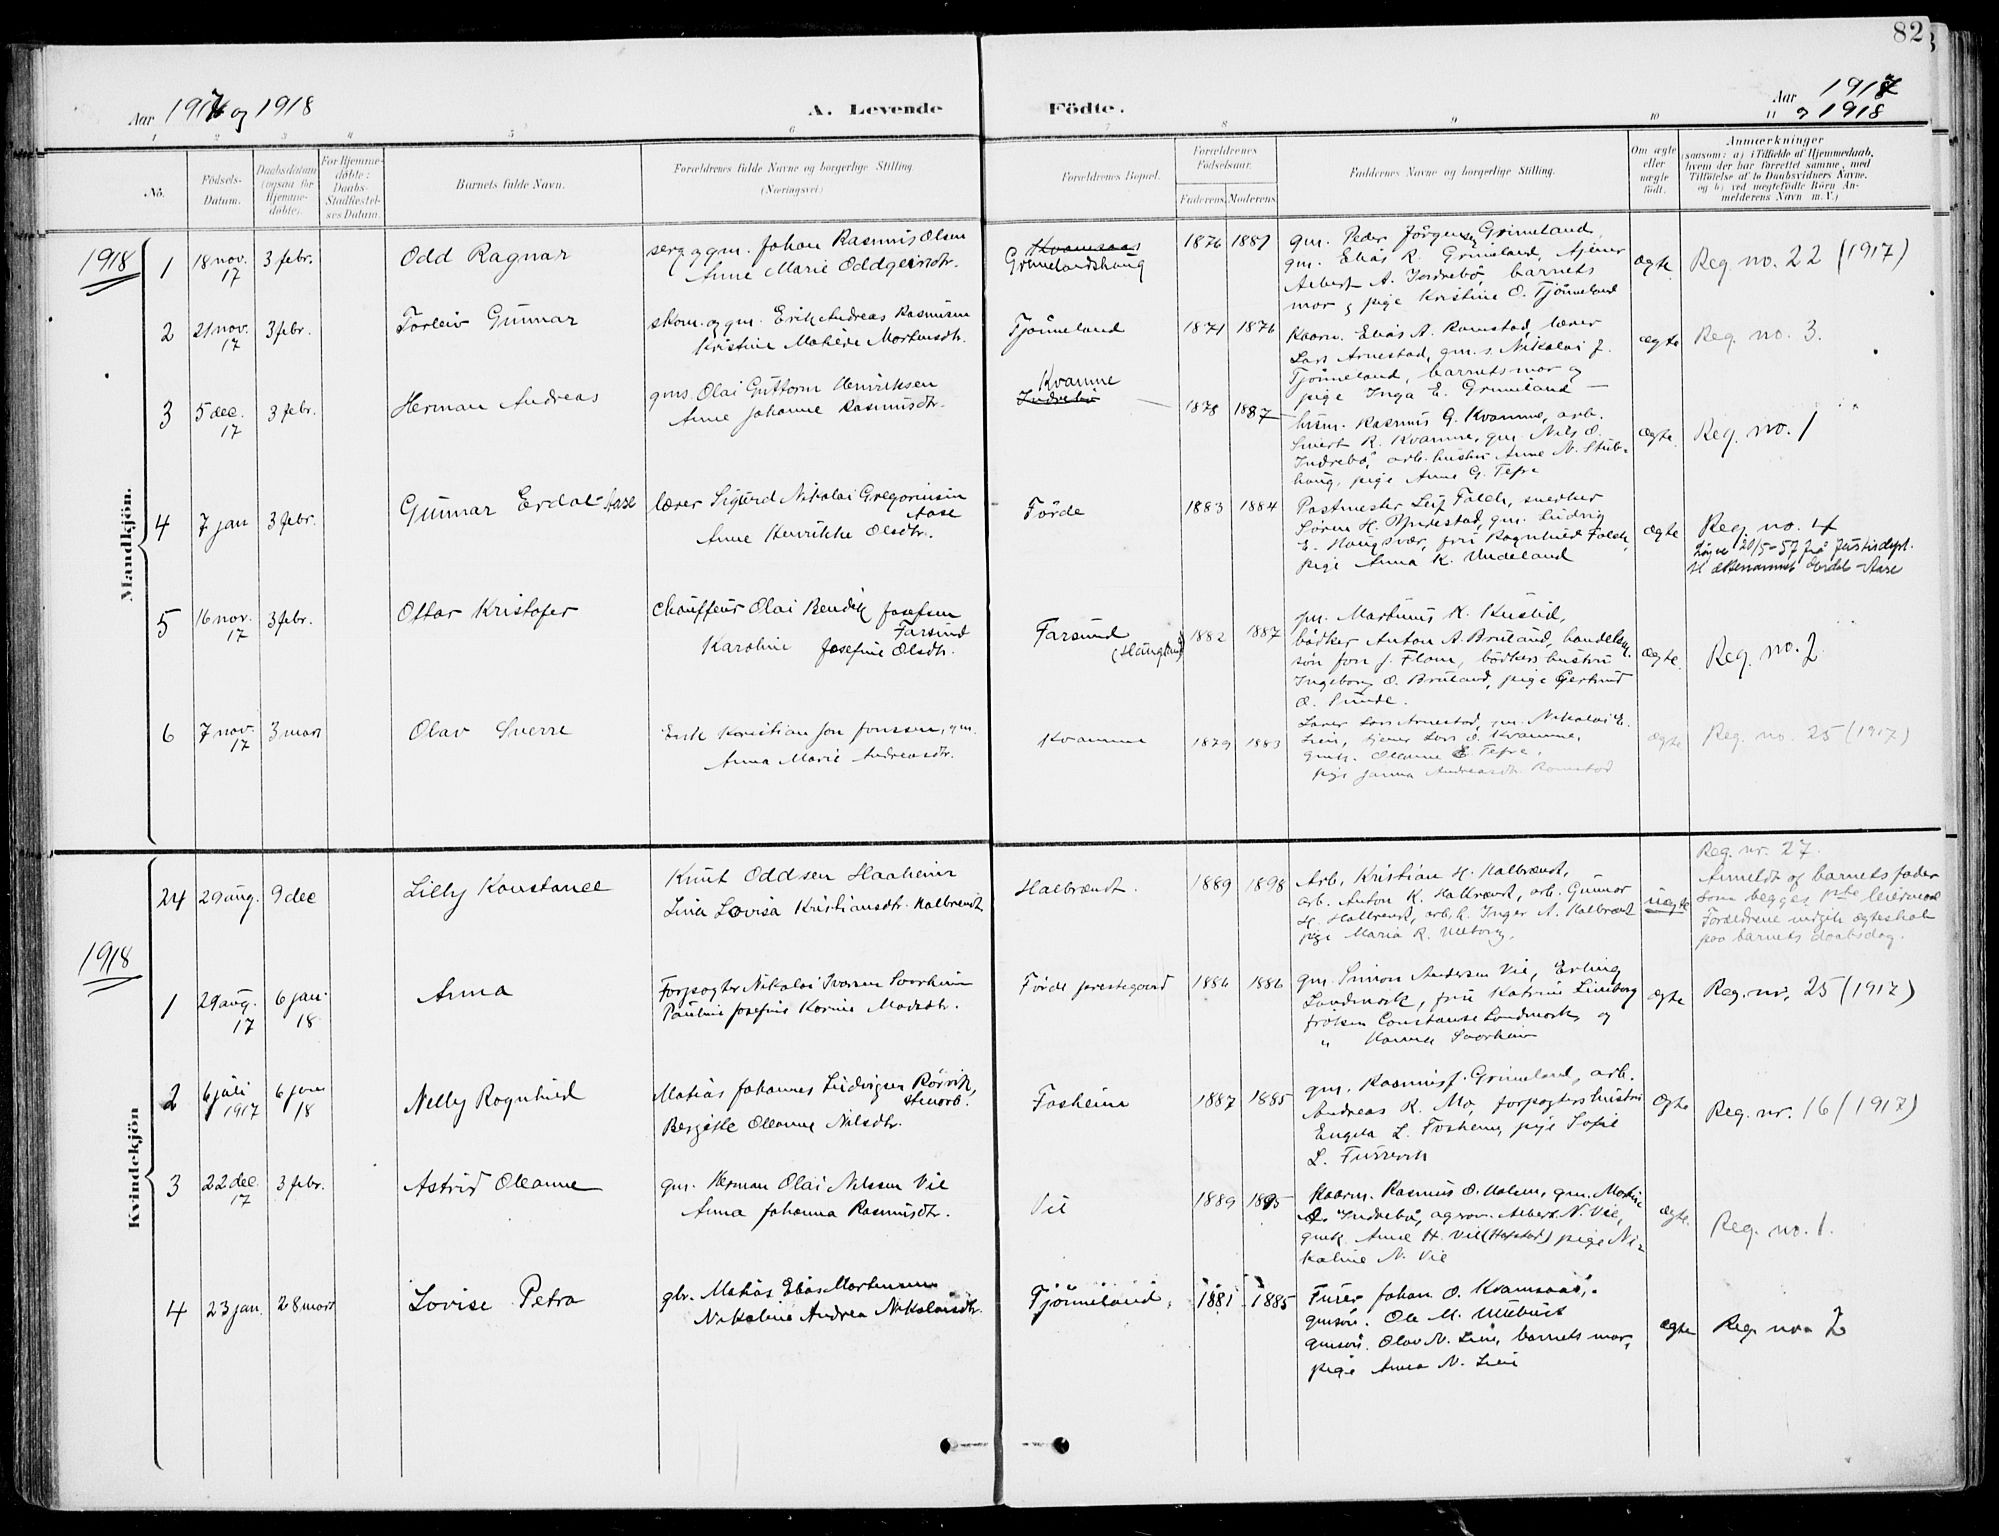 82
Aar 1917 og 1918
A. Levende Födte.
Aar 1917
og 1918
1 2 3 4 5 6 7 8 9 10 11
No.
Födsels-
Datum.
Daabsdatum
(ogsaa for
Hjemme-
döbte).
For Hjemme-
döbte:
Daabs-
Stadfæstel-
ses Datum.
Barnets fulde Navn.
Forældrenes fulde Navne og borgerlige Stilling.
(Næringsvei)
Forældrenes Bopæl.
Forældrenes
Födselsaar.
Faderens. Moderens.
Faddernes Navne og borgerlige Stilling.
Om ægte
eller
uægte
födt.
Anmærkninger
(saasom: a) i Tilfælde af Hjemmedaab,
hvem der har forrettet samme, med
Tilföielse af to Daabsvidners Navne,
og b) ved uægtefödte Börn An-
melderens Navn m. V.)
Mandkjön.
1918
1 18 nov. 17 3 febr. Odd Ragnar
serg. og gm. Johan Rasmus Olsen
Anne Marie Oddgeirsdtr.
Kvamsaas
Grimelandshaug
1876 1881
gm. Peder Jørgensen Grimeland,
gm. Elias R. Grimeland, tjener
Albert A. Indrebø, barnets
mor og pige Kristine O. Tjønneland
ægte Reg. no. 22 (1917)
2 21 nov. 17 3 febr. Torleiv Gunnar
skom. og gm. Erik Andreas Rasmussen
Kristine Matilde Mortensdtr.
Tjønneland 1871 1876
Kaarm. Elias A. Ramstad, lærer
Lars Arnestad, gm. s. Nikolai J.
Tjønneland, barnets mor og
pige Inga E. Grimeland
ægte Reg. no. 3.
3 5 dec. 17 3 febr. Herman Andreas
gms. Olai Guttorm Henriksen
Anne Johanne Rasmusdtr.
Kvamme
Indrebø
1878 1887
husm. Rasmus G. Kvamme, arb.
Sivert R. Kvamme, gm. Nils O.
Indrebø, arb. hustru Anne N. Stub-
haug, pige Anne G. Tefre
ægte. Reg. no. 1
4 7 jan 3 febr. Gunnar Erdal-Aase
lærer Sigurd Nikolai Gregoriussen
Aase
Anne Henrikke Olsdtr.
Førde 1883 1884
Postmester Leif Falch, snedker
Søren H. Bjurestad, gm. Ludvig
E. Haugsvær, fru Ragnhild Falch,
pige Anna K. Undeland
ægte Reg. no. 4
Løyve 20/5-57 frå Justisdept.
til etternamnet Erdal-Aase
5 16 nov. 17 3 febr. Ottar Kristofer
Chauffeur Olai Bendik Josefsen
Farsund
Karoline Josefine Olsdtr.
Farsund
1882 1887
gm. Martinus K. Hustid,
bødker Anton A. Bruland, handelsm.
søn Jon J. Flom, bødkers hustru
Ingeborg O. Bruland, pige Gertrud
O. Sunde.
ægte. Reg. no. 2
6 7 nov. 17 3 mars Olav Sverre
Erik Kristian Jon Jonssen, gm.
Anna Marie Andreasdtr.
Kvamme 1879 1883
Lærer Lars Arnestad, gm. Nikolai E.
Lien, tjener Lars O. Kvamme,
gmk. Oleanne E. Tefre,
pige Janna Andreasdtr. Ramstad
ægte Reg. no. 25 (1917)
Kvindekjön
24 29 aug. 9 dec Lilly Konstance
Knut Oddsen Haaheim
Lina Lovisa Kristiansdtr. Halbrendt
Halbrændt. 1889 1898
Arb. Kristian H. Halbrændt,
arb. Anton K. Halbrændt, arb. Gunnar
H. Halbrendt, arb. k. Inger A. Halbrændt
pige Maria R. Ulltang.
uægte
Reg. nr. 27.
Anmeldt af barnets fader
som begges 1ste leiermaal
Forældrene indgik ægteskab
paa barnets daabsdag.
1918
1 29 aug. 17 6 jan 18 Anna
Forpagter Nikolai Iversen Savrheim
Pauline Josefine Karine Madsdtr.
Førde prestegaard 1884 1886
gm. Simon Andersen Vie, Erling
Landmark, fru Katrine Limborg
frøken Constanse Landmark, og
" Hanna Savrheim
ægte Reg. nr. 25 (1917)
2 6 juli 1917 6 jan 18 Nelly Ragnhild
Matias Johannes Ludvigsen Rørvik,
stenarb.
Bergitte Oleanne Nilsdtr.
Fosheim 1887 1885
gm. Rasmus J. Grimeland, arb.
Andreas R. Mo, forpagters hustru
Engela L. Fosheim, pige Sofie
L. Furevik
ægte Reg. nr. 16 (1917)
3 22 dec. 17 3 febr. Astrid Oleanne
gm. Herman Olai Nilssen Vie
Anna Johanna Rasmusdtr.
Vie 1889 1895
Kaarm. Rasmus O. Holsen, gm. Martin
O. Indrebø, agron. Albert N. Vie,
gmk. Anne H. Vie (Hafstad) pige Ni-
koline N. Vie
ægte. Reg. no. 1.
4 23 jan. 28 mars Lovise Petra
gbr. Matias Elias Mortensen
Nikoline Andrea Nikolaisdtr.
Tjønneland, 1881 1885
Furer Johan O. Kvamsaas,
gmsøn. Ole M. Ullebust
gmsøn. Olav N. Lien, barnets mor,
pige Anna N. Lien
ægte Reg. no. 2